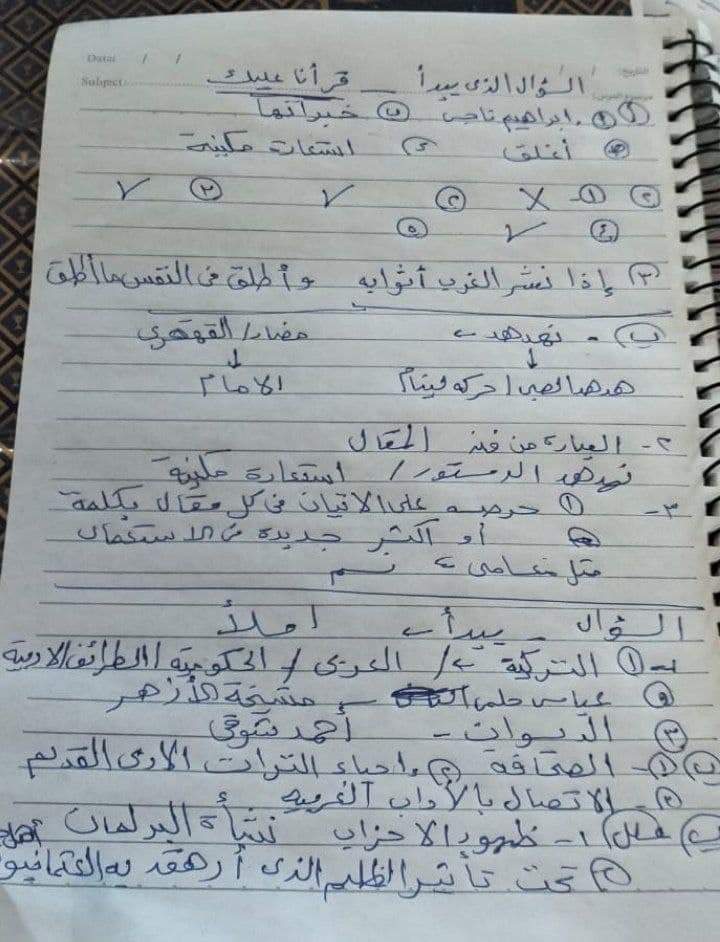 Date: / / التاريخ:
Subject:
السؤال الذى يبدأ - قرأنا عليك
أ) ١- ابراهيم ناجى ٢) خبراتها
٣) أغلق ٤) استعارة مكنية
٢) ١- X ٢) ✓ ٣) ✓
٤) ✓ ٥)
٣) إذا نشر الغرب أثوابه وأطلق فى النفس ما أطلق
ب) - تهدهد ← مضاد/ القهقري
↓ ↓
هدهد الصبى/ حركه لينام الامام
٢- العبارة من فن المقال
تهدهد الدستور/ استعارة مكنية
٣- ١) حرصه على الاتيان فى كل مقال بكلمة
أو أكثر جديدة فى الاستعمال
مثل ←
السؤال يبدأ ← املأ
١) التركية ← / العربى / الحكومية / الطرائف الادبية
عباس حلمى ← مشيخة الأزهر
٣) الديوان - أحمد شوقى
ب) ١- الصحافة ٢) احياء التراث الادبى القديم
٣- الاتصال بالآداب الغربيه
علل ١- ظهور الاحزاب نشأة البرلمان
٢) تحت تأثير الظلم الذى أرهقه به العثمانيو